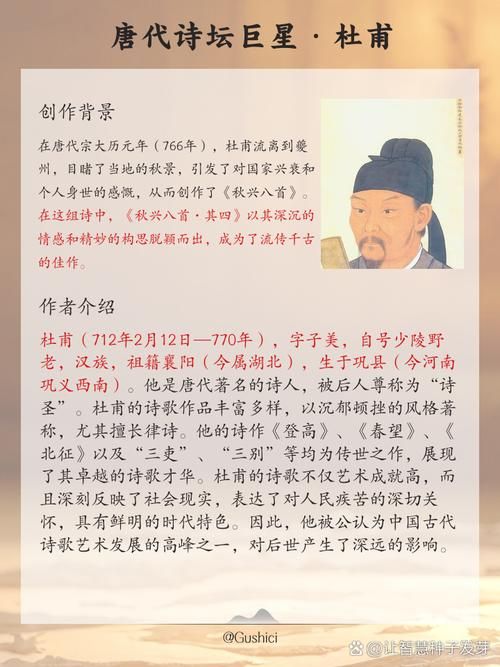 唐代诗坛巨星·杜甫
创作背景
在唐代宗大历元年（766年），杜甫流离到夔
州，目睹了当地的秋景，引发了对国家兴衰和
个人身世的感慨，从而创作了《秋兴八首》。
在这组诗中，《秋兴八首·其四》以其深沉的
情感和精妙的构思脱颖而出，成为了流传千古
的佳作。
作者介绍
杜甫（712年2月12日—770年），字子美，自号少陵野
老，汉族，祖籍襄阳（今属湖北），生于巩县（今河南
巩义西南）。他是唐代著名的诗人，被后人尊称为“诗
圣”。杜甫的诗歌作品丰富多样，以沉郁顿挫的风格著
称，尤其擅长律诗。他的诗作《登高》、《春望》、《
北征》以及“三吏”、“三别”等均为传世之作，展现
了其卓越的诗歌才华。杜甫的诗歌不仅艺术成就高，而
且深刻反映了社会现实，表达了对人民疾苦的深切关
怀，具有鲜明的时代特色。因此，他被公认为中国古代
诗歌艺术发展的高峰之一，对后世产生了深远的影响。
@Gushici
@让智慧种子发芽